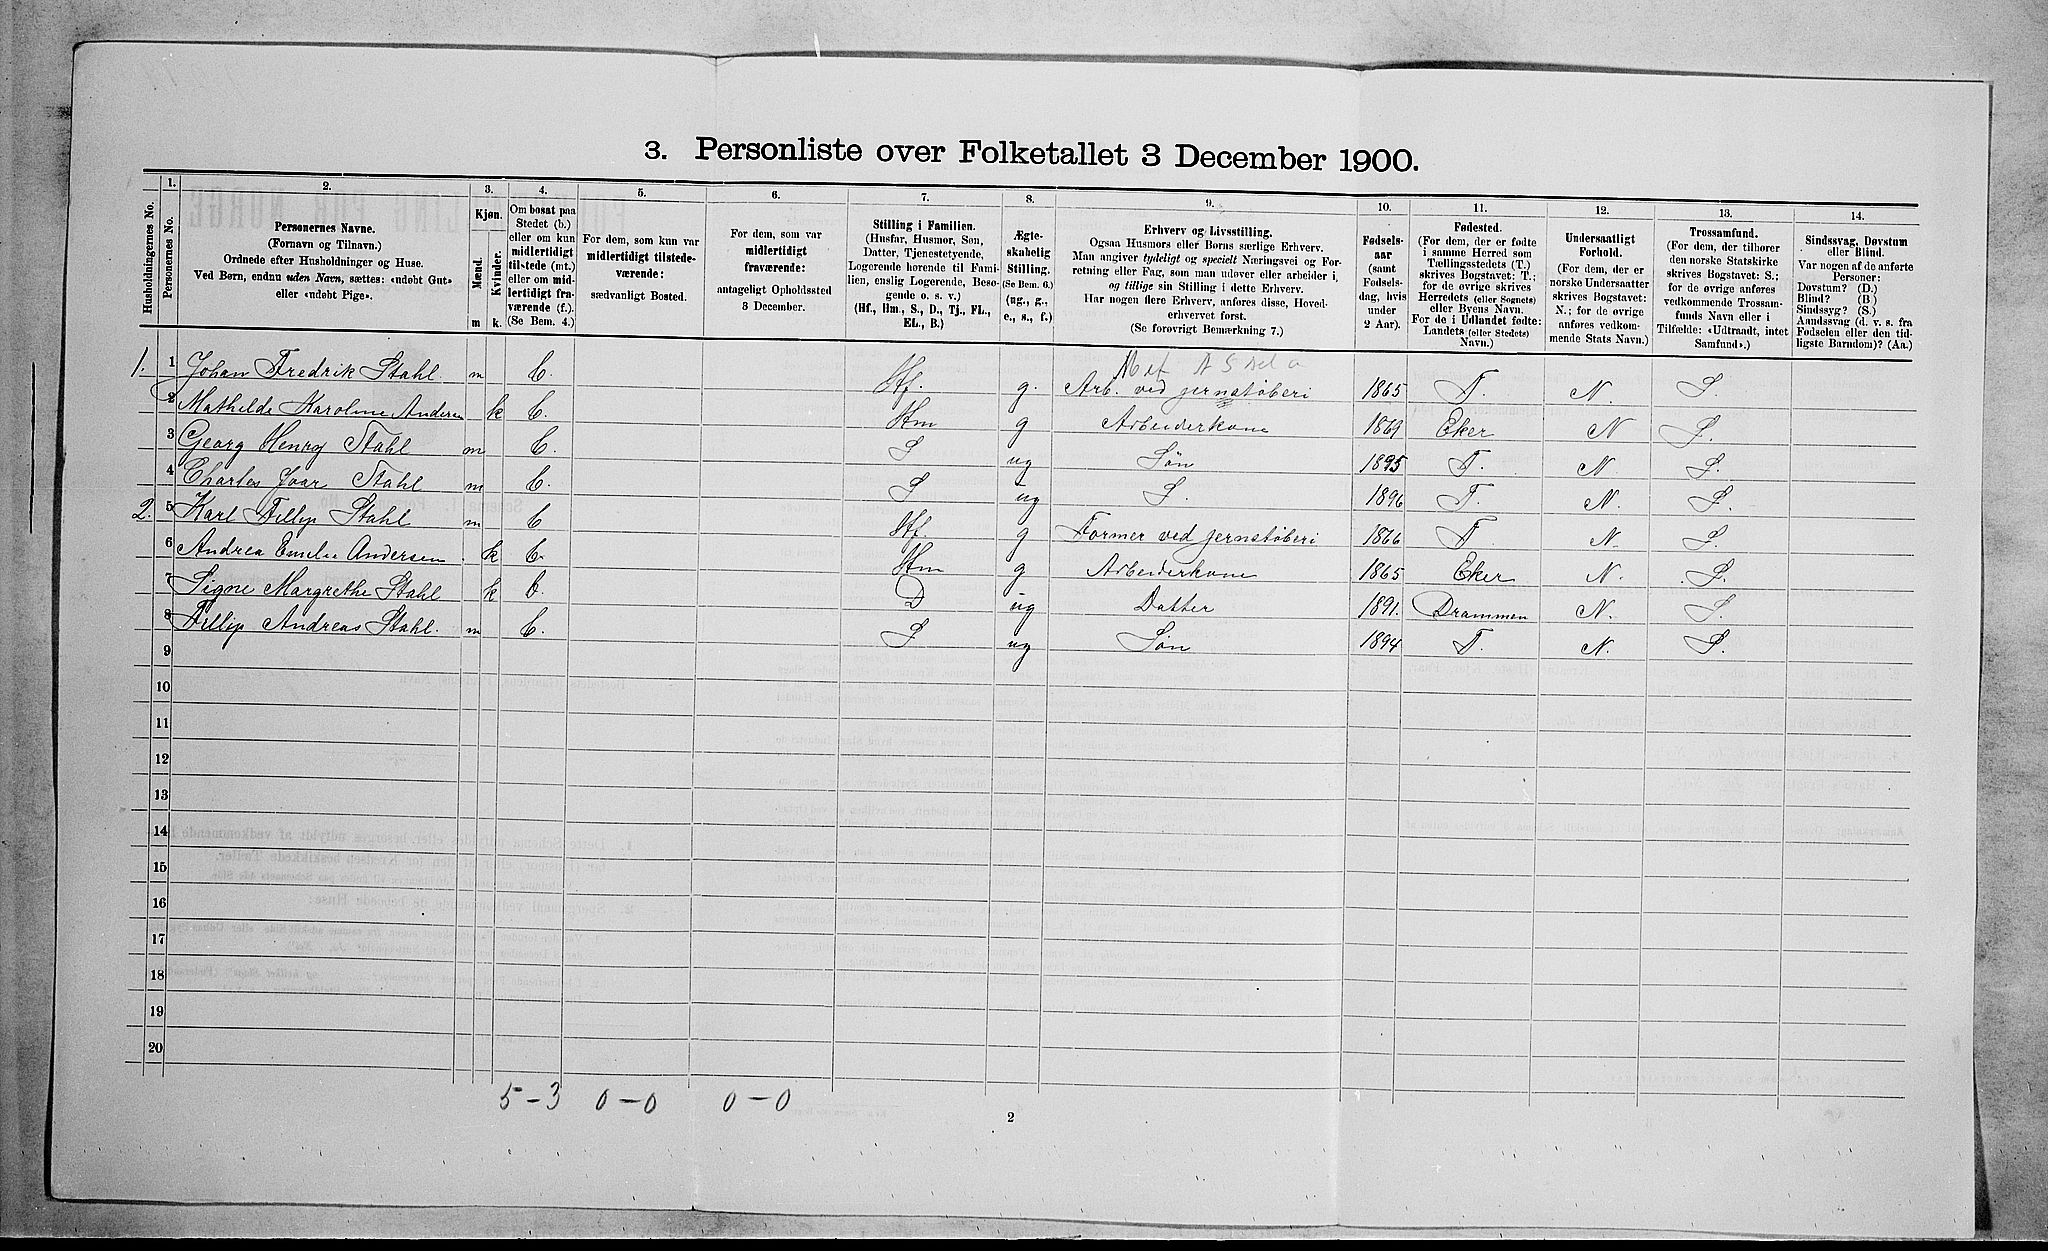 3. Personliste over Folketallet 3 December 1900.
1. 2. 3. 4. 5. 6. 7. 8. 9. 10. 11. 12. 13. 14.
Husholdningernes No.
Personernes No.
Personernes Navne.
(Fornavn og Tilnavn.)
Ordnede efter Husholdninger og Huse.
Ved Børn, endnu uden Navn, sættes: «udøbt Gut»
eller «udøbt Pige».
Kjøn.
Mænd.
Kvinder.
m k.
Om bosat paa
Stedet (b.)
eller om kun
midlertidigt
tilstede (mt.)
eller om mid-
lertidigt fra-
værende (f.).
(Se Bem. 4.)
For dem, som kun var
midlertidigt tilstede-
værende:
sædvanligt Bosted.
For dem, som var
midlertidigt
fraværende:
antageligt Opholdssted
3 December.
Stilling i Familien.
(Husfar, Husmor, Søn,
Datter, Tjenestetyende,
Logerende hørende til Fami-
lien, enslig Logerende, Besø-
gende o. s. v.)
(Hf., Hm., S., D., Tj., FL.,
EL., B.)
Ægte-
skabelig
Stilling.
(Se Bem. 6.)
(ug., g.,
e., s., f.)
Erhverv og Livsstilling.
Ogsaa Husmors eller Børns særlige Erhverv.
Man angiver tydeligt og specielt Næringsvei og For-
retning eller Fag, som man udøver eller arbeider i,
og tillige sin Stilling i dette Erhverv.
Har nogen flere Erhverv, anføres disse, Hoved-
erhvervet først.
(Se forøvrigt Bemærkning 7.)
Fødsels-
aar
(samt
Fødsels-
dag, hvis
under
2 Aar).
Fødested.
(For dem, der er fødte
i samme Herred som
Tællingsstedets (T.)
skrives Bogstavet: T.;
for de øvrige skrives
Herredets (eller Sognets)
eller Byens Navn.
For de i Udlandet fødte:
Landets (eller Stedets)
Navn.)
Undersaatligt
Forhold.
(For dem, der er
norske Undersaatter
skrives Bogstavet:
N.; for de øvrige
anføres vedkom-
mende Stats Navn.)
Trossamfund.
(For dem, der tilhører
den norske Statskirke
skrives Bogstavet: S.;
for de øvrige anføres
vedkommende Trossam-
funds Navn eller i
Tilfælde: «Udtraadt, intet
Samfund».)
Sindssvag, Døvstum
eller Blind.
Var nogen af de anførte
Personer:
Døvstum? (D.)
Blind? (B.)
Sindssyg? (S.)
Aandssvag (d. v. s. fra
Fødselen eller den tid-
ligste Barndom)? (Aa.)
1. 1 Johan Fredrik Stahl m b. Hf. g. Arb. ved jernstøberi 1865 T. N. S.
2 Mathilde Karoline Andersen k b. Hm g Arbeiderkone 1869 Eker N S.
3 Georg Henry Stahl m b. S ug Søn 1895 T. N S.
4 Charles Joar Stahl m b. S ug S. 1896 T. N. S.
2. 5 Karl Fillip Stahl m b Hf. g Former ved jernstøberi 1866 T N. S.
6 Andrea Emilie Andersen. k b. Hm g Arbeiderkone 1865 Eker N. S.
7 Signe Margrethe Stahl k b. D ug Datter 1891. Drammen N. S.
8 Fillip Andreas Stahl. m b. S ug Søn 1894 T. N. S.
9
10
11
12
13
14
15
16
17
18
19
20
5-3 0-0 0-0
2